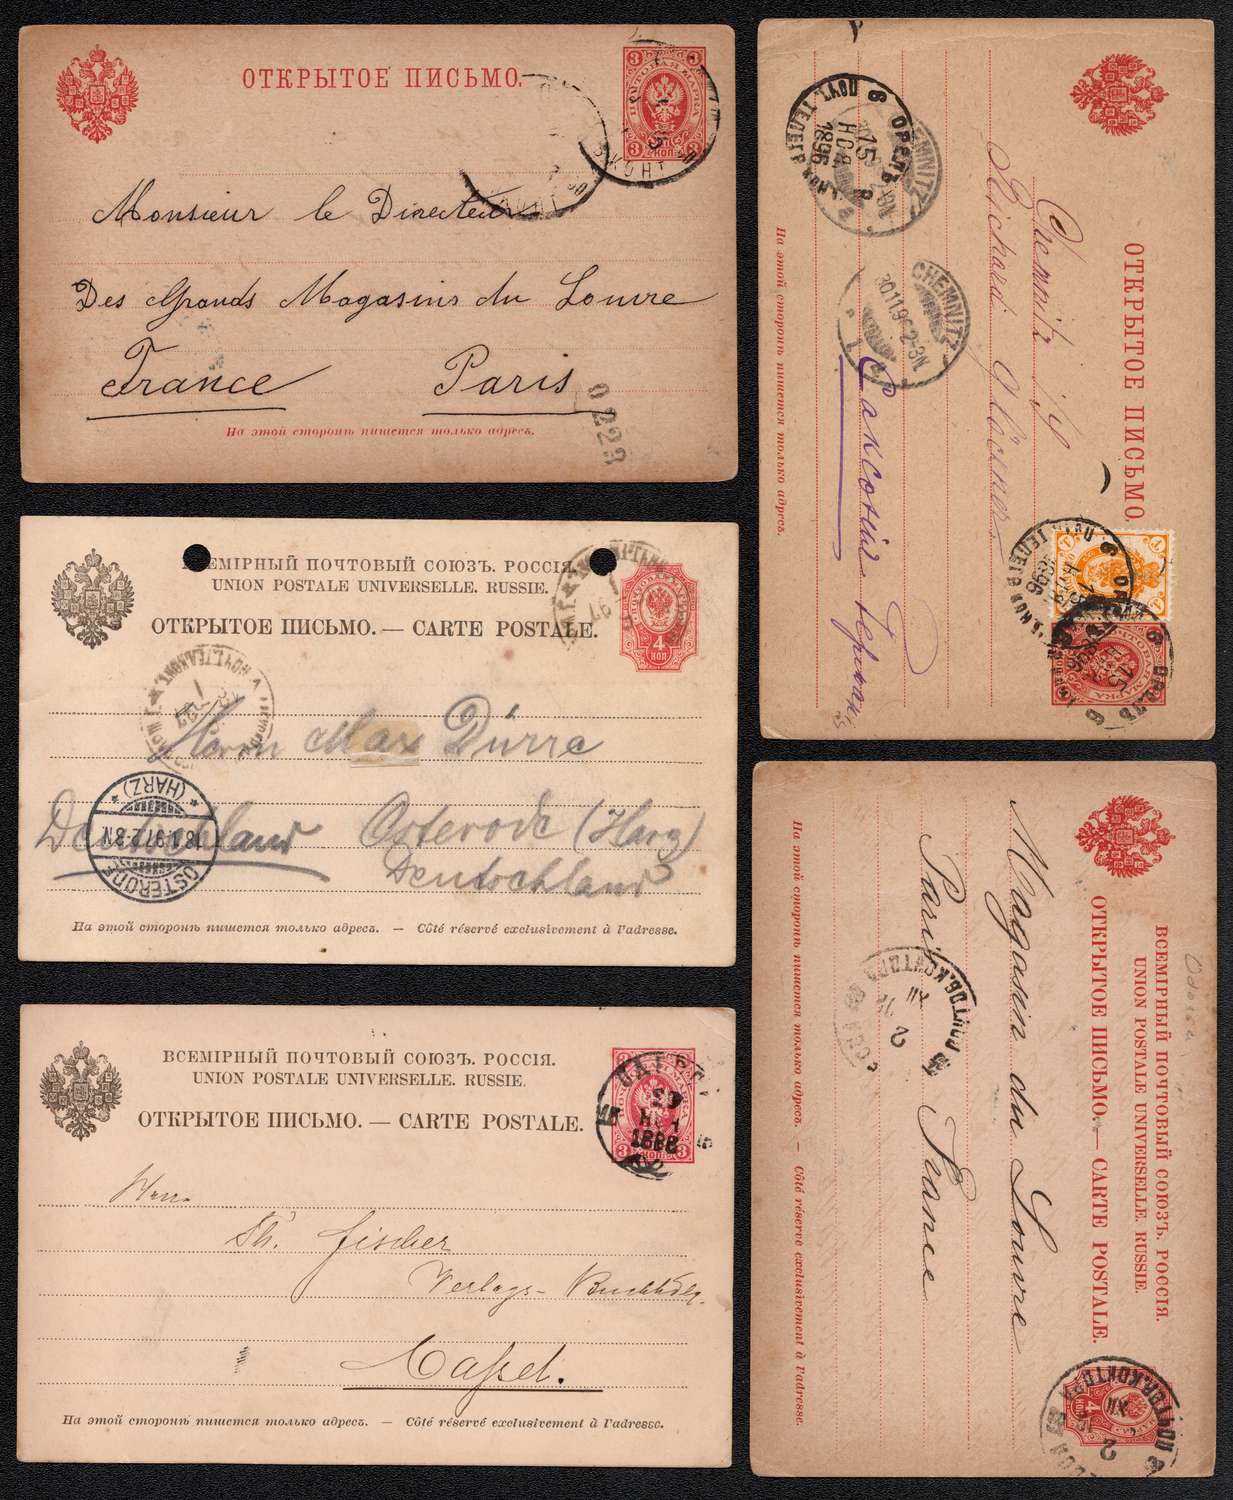 ОТКРЫТОЕ ПИСЬМО.
3 3
3 КОП 3
Monsieur le Directeur
Des Grands Magasins du Louvre
France Paris
На этой сторонѣ пишется только адресъ.
0 22
ВСЕМІРНЫЙ ПОЧТОВЫЙ СОЮЗЪ. РОССІЯ.
UNION POSTALE UNIVERSELLE. RUSSIE.
ОТКРЫТОЕ ПИСЬМО. — CARTE POSTALE.
4
КОП
Herrn Max Dürre
Deutschland Osterode (Harz)
Deutschland
OSTERODE
18.1.97.2-3N
* (HARZ) *
На этой сторонѣ пишется только адресъ. — Côté réservé exclusivement à l'adresse.
ВСЕМІРНЫЙ ПОЧТОВЫЙ СОЮЗЪ. РОССІЯ.
UNION POSTALE UNIVERSELLE. RUSSIE.
ОТКРЫТОЕ ПИСЬМО. — CARTE POSTALE.
3 3
1888
Herrn
Th. Fischer
Verlags-Buchhdlg.
Cassel.
На этой сторонѣ пишется только адресъ. — Côté réservé exclusivement à l'adresse.
ОТКРЫТОЕ ПИСЬМО.
Chemnitz i/S
Richard
Саксонія Герман.
На этой сторонѣ пишется только адресъ.
6 ОРЕЛЪ 6
15
НОЯ
1896
ПОЧ. ТЕЛЕГР.
CHEMNITZ
30 11 96 2-3N
1
ВСЕМІРНЫЙ ПОЧТОВЫЙ СОЮЗЪ. РОССІЯ.
UNION POSTALE UNIVERSELLE. RUSSIE.
ОТКРЫТОЕ ПИСЬМО. — CARTE POSTALE.
4
Magasin du Louvre
Paris France
На этой сторонѣ пишется только адресъ. — Côté réservé exclusivement à l'adresse.